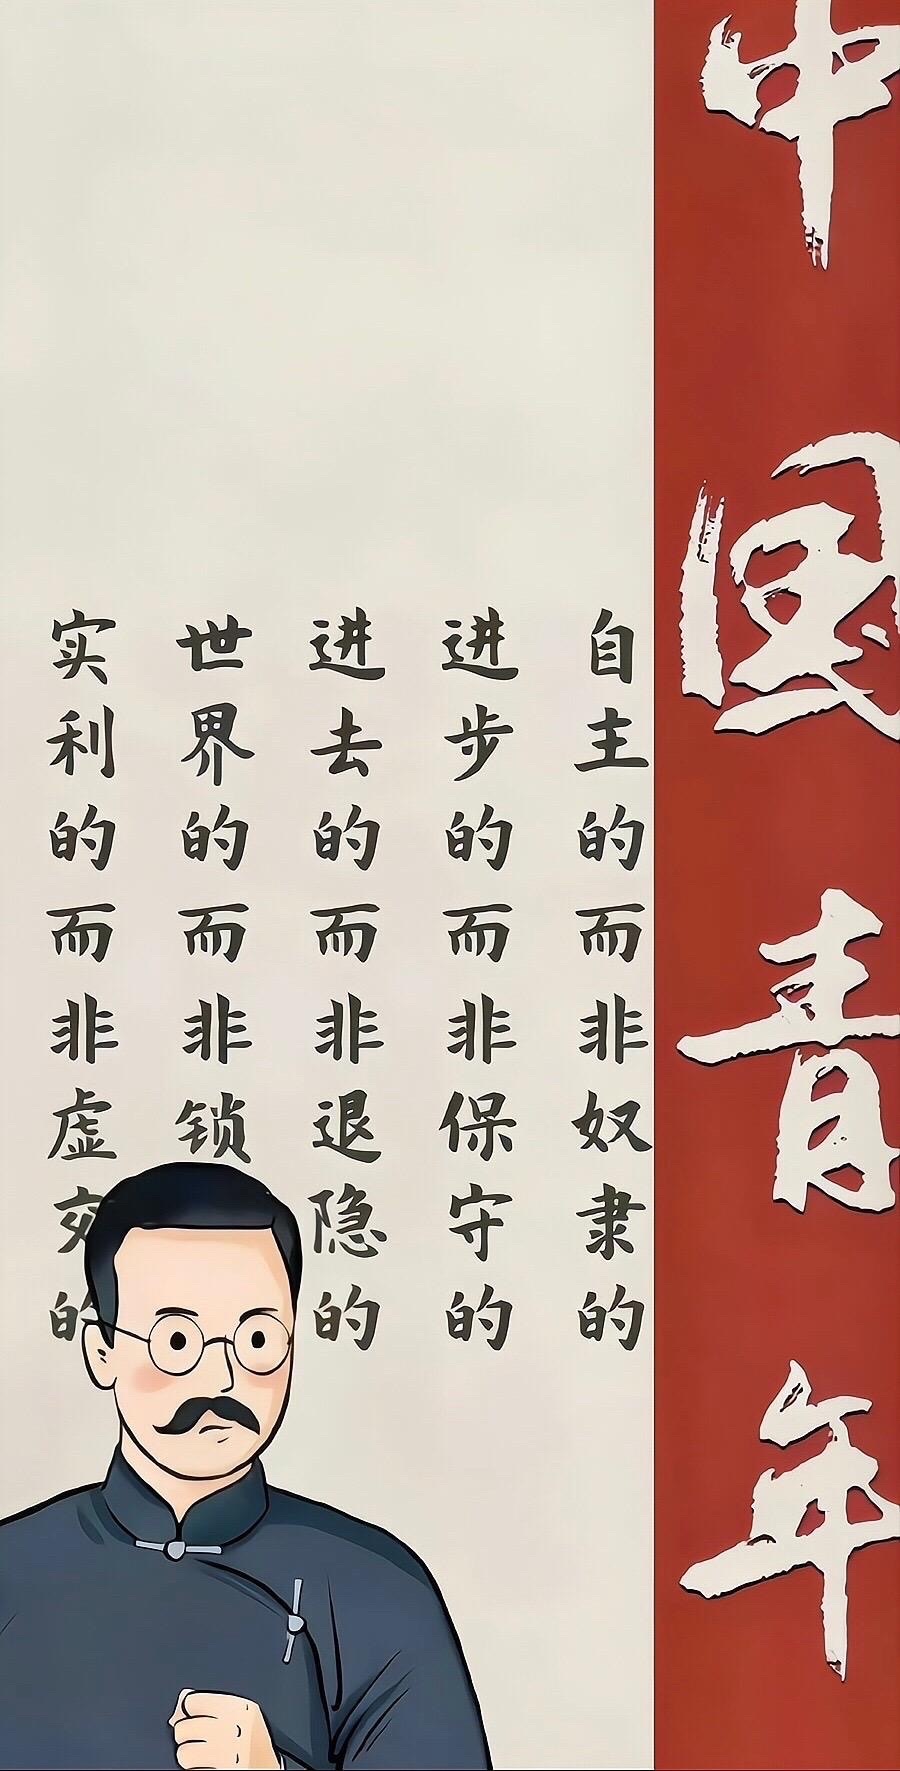 中国青年
自主的而非奴隶的
进步的而非保守的
进去的而非退隐的
世界的而非锁
实利的而非虚